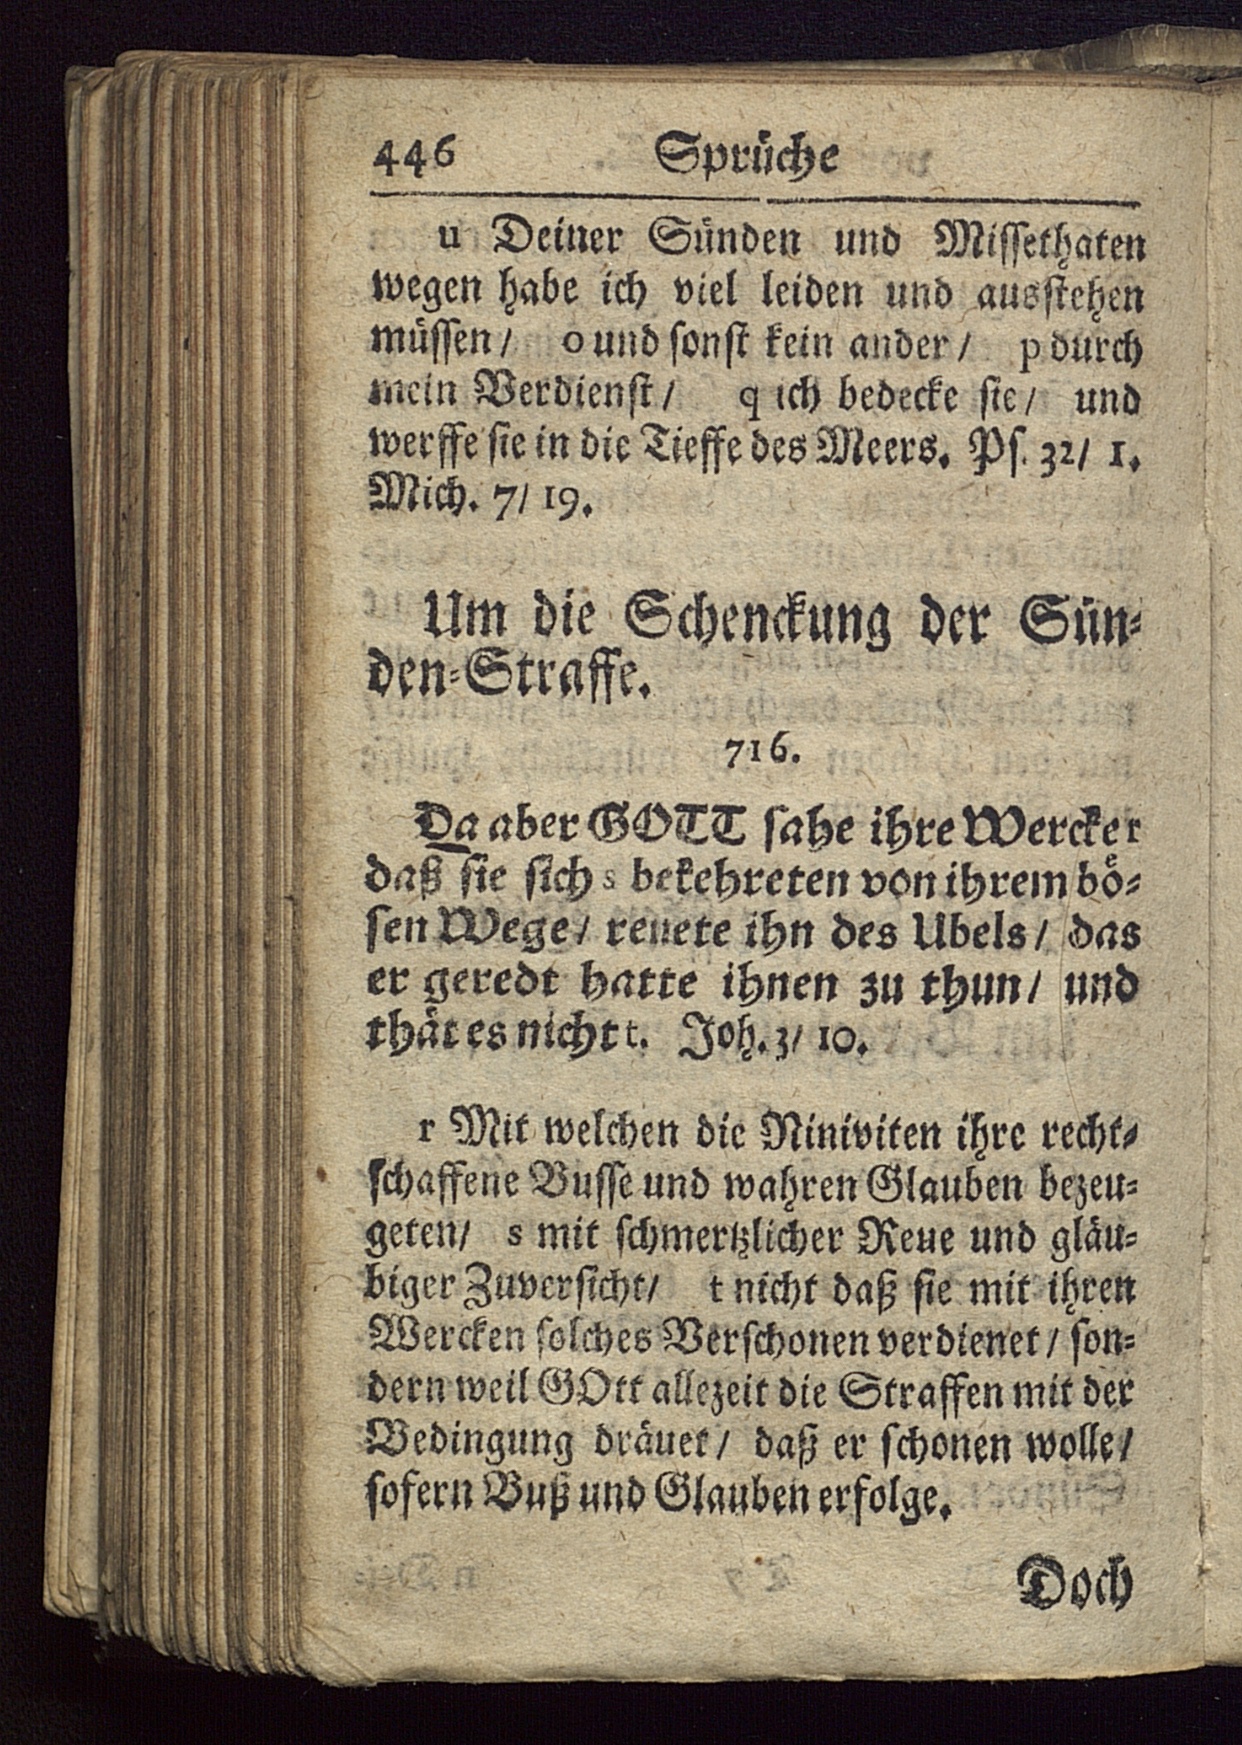 446 Sprüche
u Deiner Sünden und Missethaten
wegen habe ich viel leiden und ausstehen
müssen/ o und sonst kein ander/ p durch
mein Verdienst/ q ich bedecke sie/ und
werffe sie in die Tieffe des Meers. Ps. 32/ 1.
Mich. 7/ 19.
Um die Schenckung der Sün-
den-Straffe.
716.
Da aber GOTT sahe ihre Wercke r
daß sie sich s bekehreten von ihrem bö-
sen Wege/ reuete ihn des Ubels/ das
er geredt hatte ihnen zu thun/ und
thät es nicht t. Joh. 3/ 10.
r Mit welchen die Niniviten ihre recht-
schaffene Busse und wahren Glauben bezeu-
geten/ s mit schmertzlicher Reue und gläu-
biger Zuversicht/ t nicht daß sie mit ihren
Wercken solches Verschonen verdienet/ son-
dern weil GOtt allezeit die Straffen mit der
Bedingung dräuet/ daß er schonen wolle/
sofern Buß und Glauben erfolge.
Doch